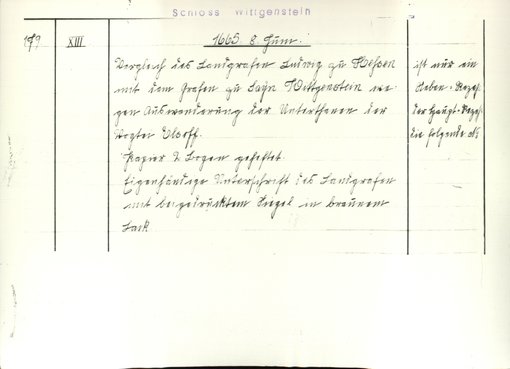 Schloss Wittgenstein
179 XIII 1665 8 Juni.
Vergleich des Landgrafen Ludwig zu Hessen
mit dem Grafen zu Sayn Wittgenstein we-
gen Auswanderung der Unterthanen der
Vogtei Elsoff.
Papier 2 Bogen geheftet.
Eigenhändige Unterschrift des Landgrafen
mit beigedrücktem Siegel in braunem
Lack
ist nur ein
Neben-Rezeß
der Haupt-Rezeß
die folgende